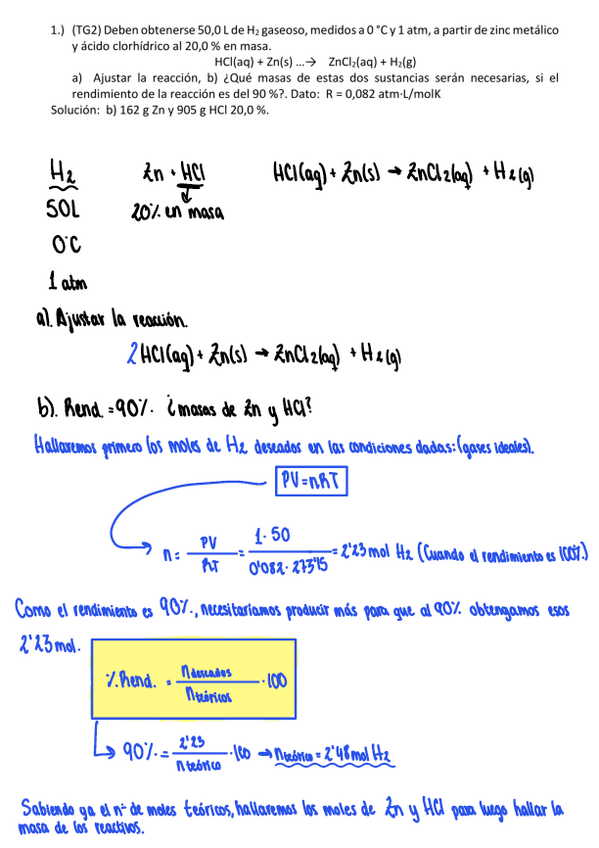 1.) (TG2) Deben obtenerse 50,0 L de H₂ gaseoso, medidos a 0 °C y 1 atm, a partir de zinc metálico
y ácido clorhídrico al 20,0 % en masa.
HCl(aq) + Zn(s) ...→ ZnCl₂(aq) + H₂(g)
a) Ajustar la reacción, b) ¿Qué masas de estas dos sustancias serán necesarias, si el
rendimiento de la reacción es del 90 %?. Dato: R = 0,082 atm·L/molK
Solución: b) 162 g Zn y 905 g HCl 20,0 %.
H₂ Zn + HCl HCl(aq) + Zn(s) → ZnCl₂(aq) + H₂(g)
50L 20% en masa
0°C
1 atm
a). Ajustar la reacción.
2HCl(aq) + Zn(s) → ZnCl₂(aq) + H₂(g)
b). Rend. = 90%. ¿masas de Zn y HCl?
Hallaremos primero los moles de H₂ deseados en las condiciones dadas: (gases ideales).
PV=nRT
n = PV / RT = 1·50 / 0'082·273'15 = 2'23 mol H₂ (Cuando el rendimiento es 100%.)
Como el rendimiento es 90%., necesitaríamos producir más para que al 90% obtengamos esos
2'23 mol.
%.Rend. = n deseados / n teóricos ·100
90%. = 2'23 / n teórico ·100 → n teórico = 2'48 mol H₂
Sabiendo ya el nº de moles teóricos, hallaremos los moles de Zn y HCl para luego hallar la
masa de los reactivos.